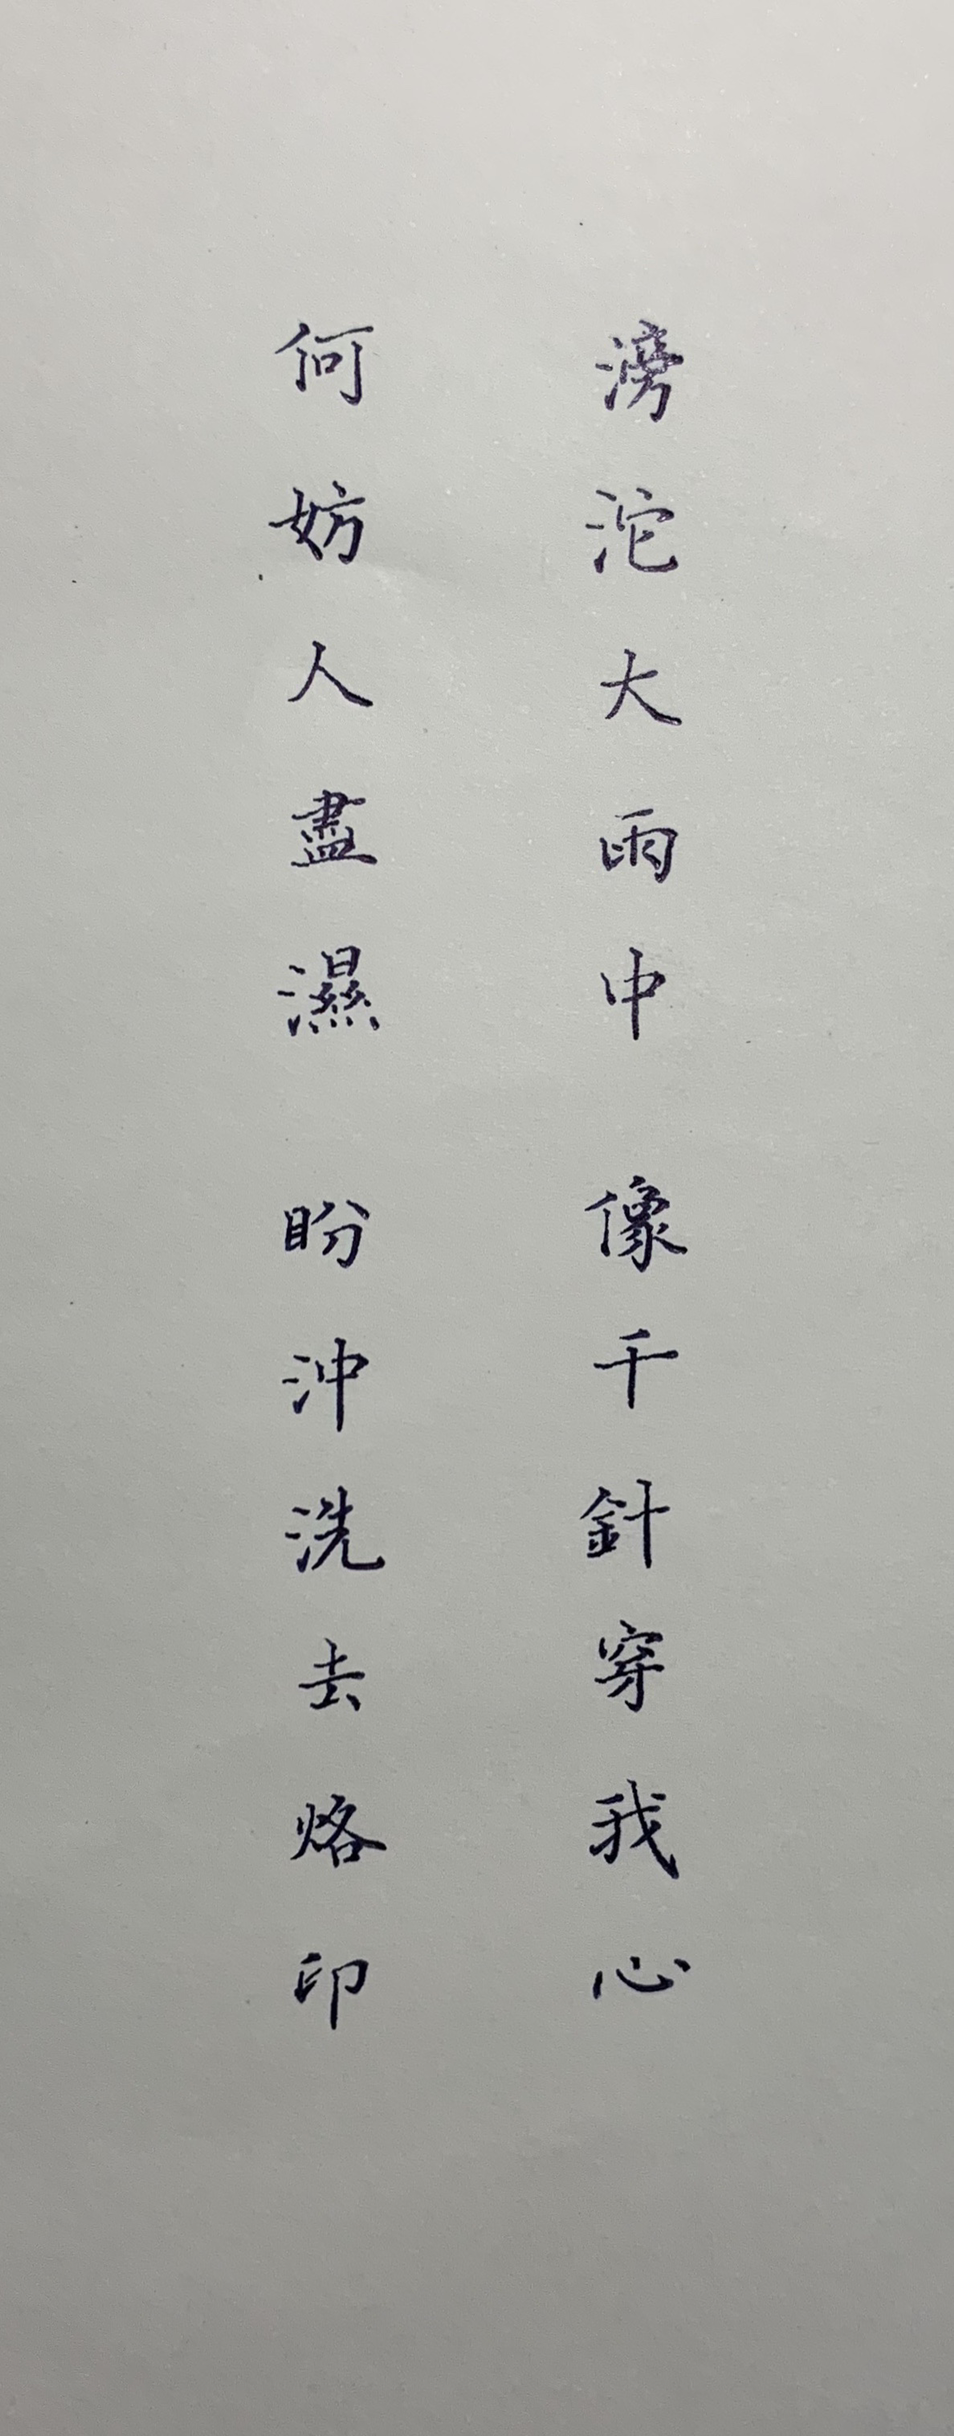 滂沱大雨中 像千針穿我心
何妨人盡濕 盼沖洗去烙印